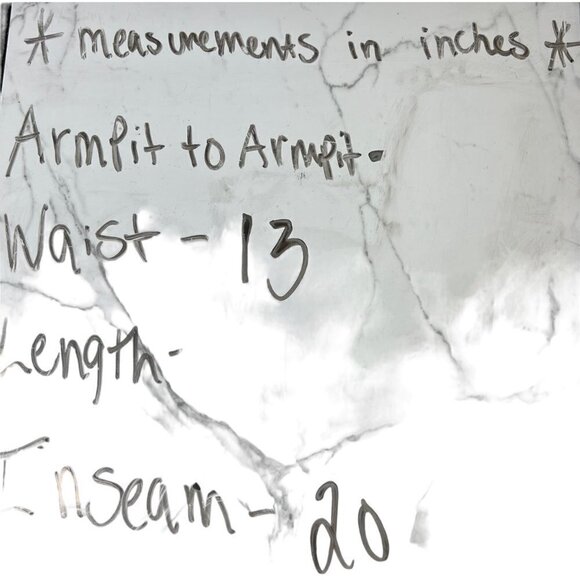 * measurements in inches *
Armpit to Armpit-
Waist - 13
Length-
Inseam - 20